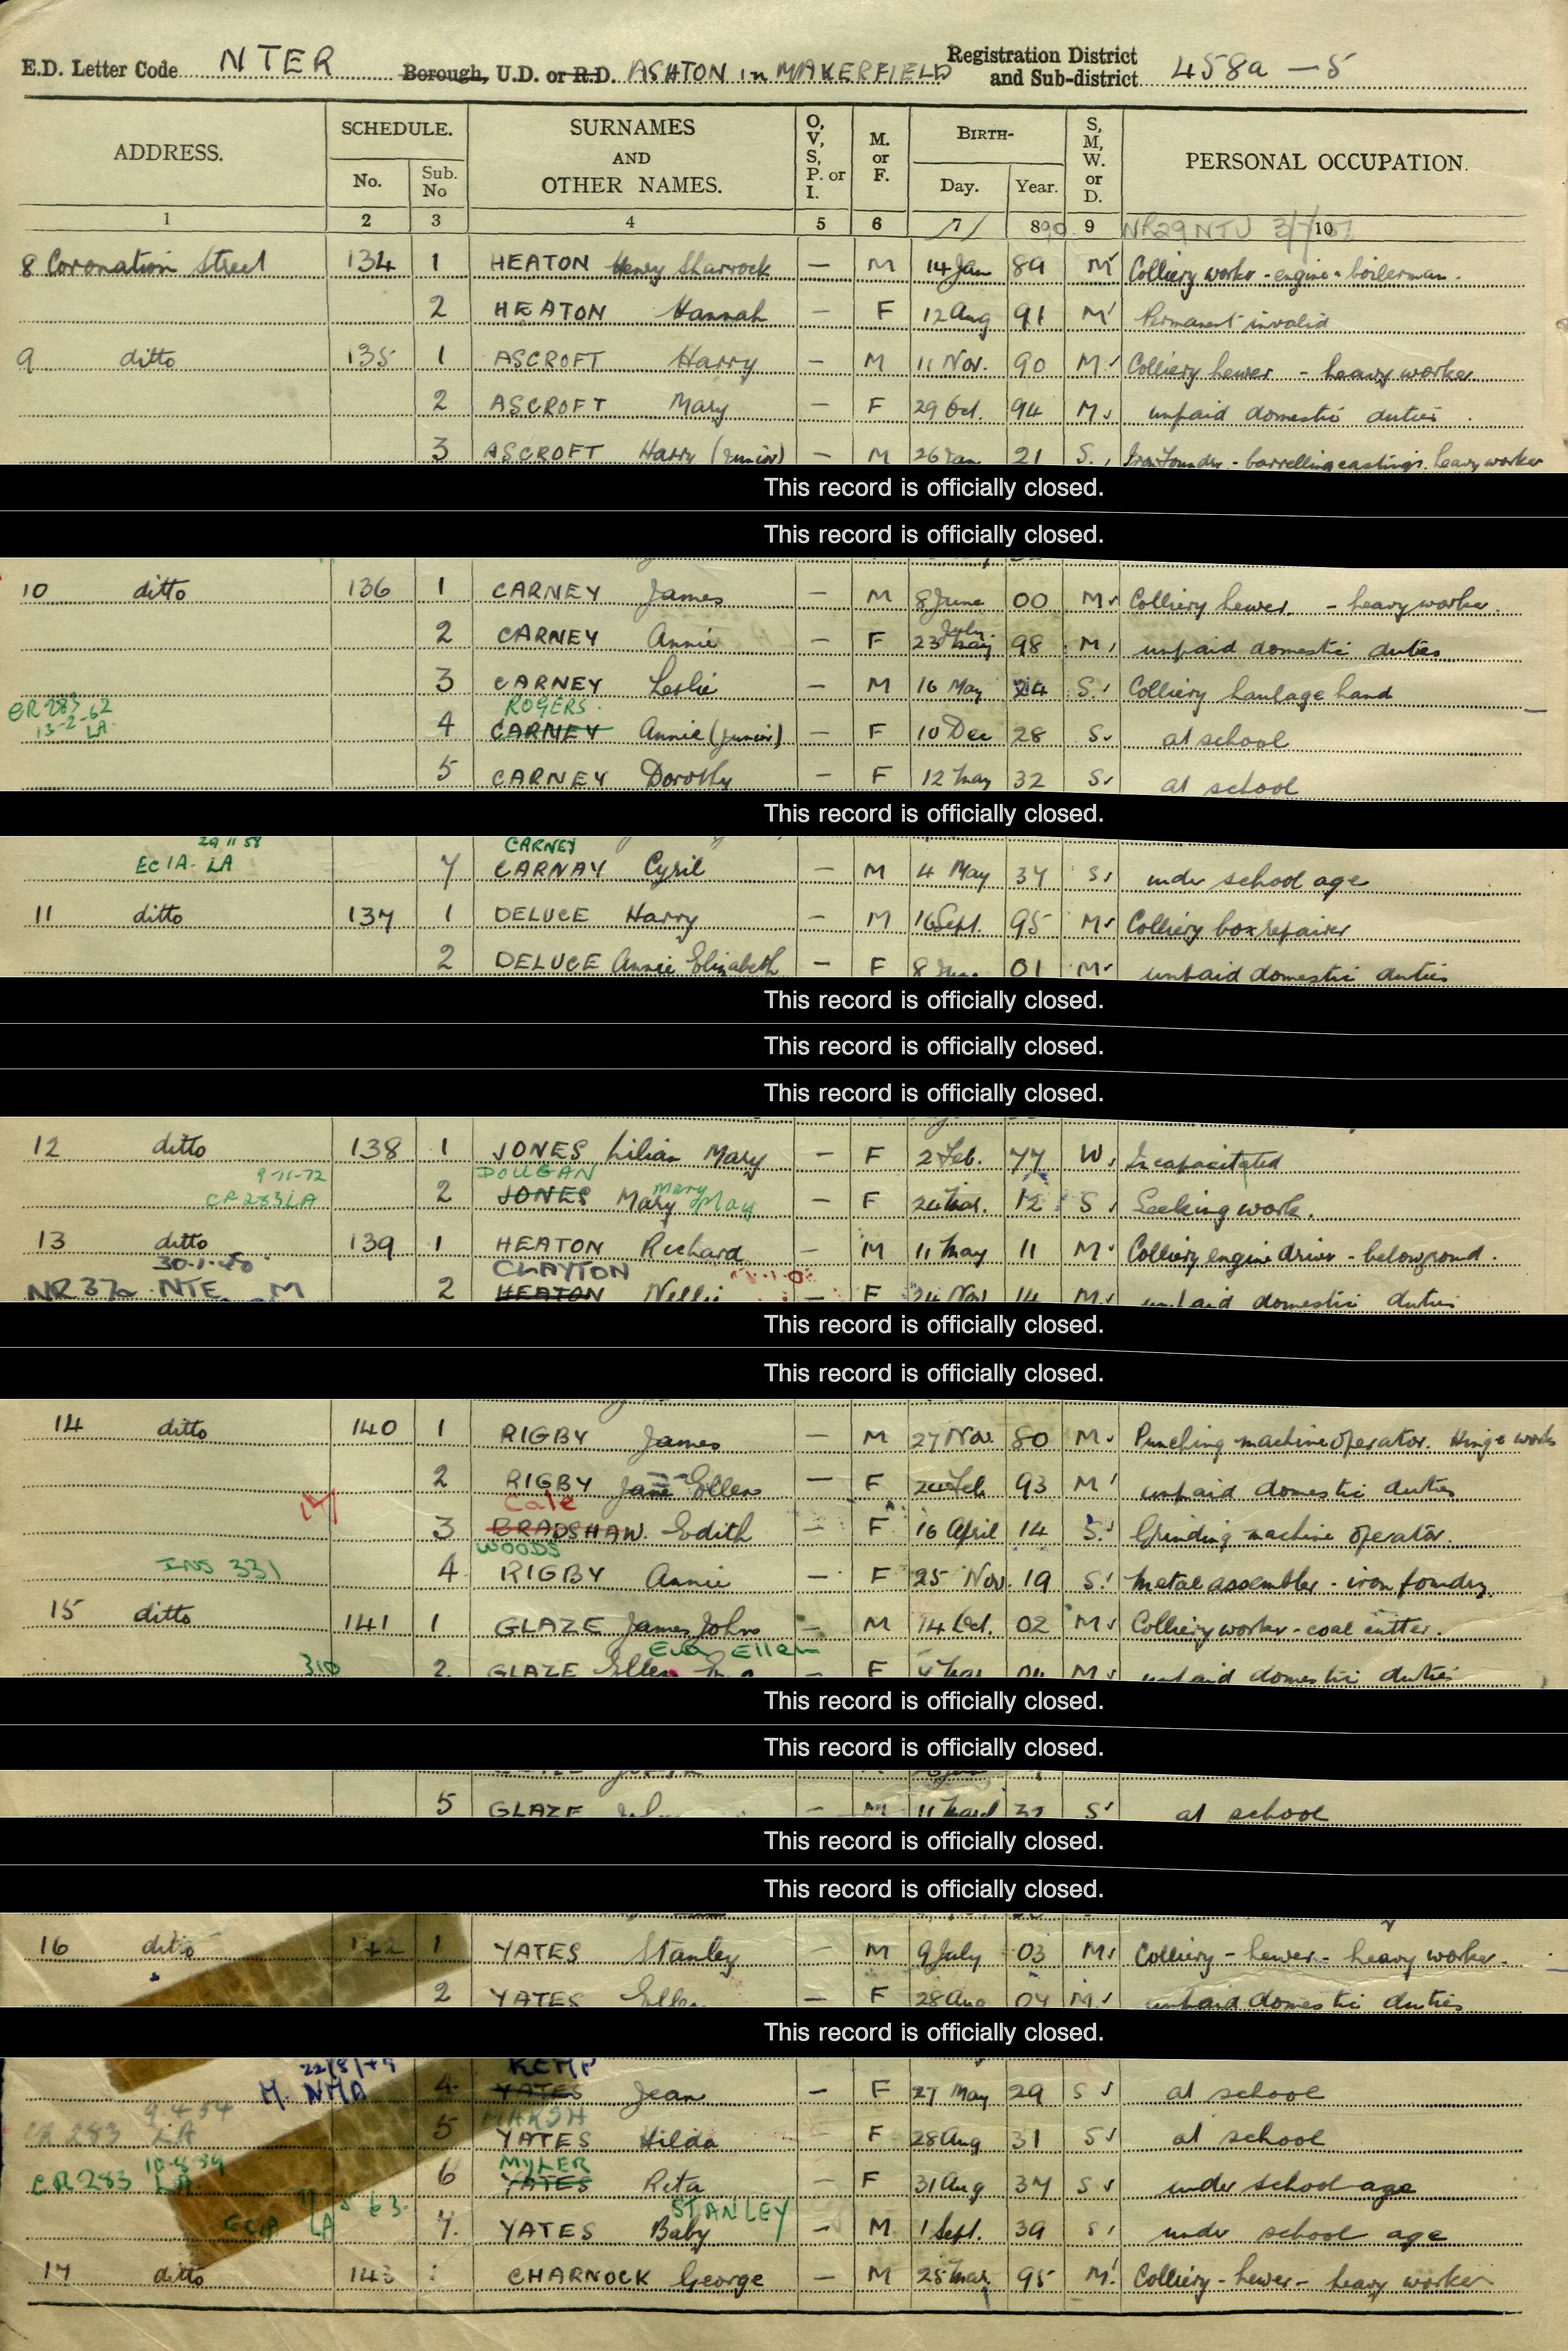 E.D. Letter Code NTER Borough, U.D. or R.D. ASHTON in MAKERFIELD Registration District and Sub-district 458a — 5
ADDRESS. SCHEDULE. No. Sub. No SURNAMES AND OTHER NAMES. O, V, S, P. or I. M. or F. BIRTH- Day. Year. S, M, W. or D. PERSONAL OCCUPATION.
1 2 3 4 5 6 7 8 9 10
8 Coronation Street 134 1 HEATON Henry Sharrock — M 14 Jan 89 M Colliery worker - engine - boilerman.
2 HEATON Hannah — F 12 Aug 91 M Permanent invalid
9 ditto 135 1 ASCROFT Harry — M 11 Nov. 90 M Colliery hewer - heavy worker
2 ASCROFT Mary — F 29 Oct. 94 M unpaid domestic duties
3 ASCROFT Harry (junior) — M 26 Jan 21 S. Iron Foundry - barrelling castings. heavy worker
This record is officially closed.
This record is officially closed.
10 ditto 136 1 CARNEY James — M 8 June 00 M Colliery hewer - heavy worker.
2 CARNEY Annie — F 23 May July 98 M unpaid domestic duties
3 CARNEY Leslie — M 16 May 24 S. Colliery haulage hand
CR 283 13-2-62 LA
ROGERS.
4 CARNEY Annie (junior) — F 10 Dec 28 S at school
5 CARNEY Dorothy — F 12 May 32 S at school
This record is officially closed.
29 11 58 CARNEY
EC1A. LA 7 CARNAY Cyril — M 4 May 37 S under school age
11 ditto 137 1 DELUCE Harry — M 16 Sept. 95 M Colliery box repairer
2 DELUCE Annie Elizabeth — F 8 01 M unpaid domestic duties
This record is officially closed.
This record is officially closed.
This record is officially closed.
12 ditto 138 1 JONES Lilian Mary — F 2 Feb. 77 W Incapacitated
9-11-72 DOUGAN
CR283LA 2 JONES Mary Mary May — F 24 Mar. 12 S Seeking work.
13 ditto 139 1 HEATON Richard — M 11 May 11 M Colliery engine driver - belowground.
CLAYTON
NR 37a NTE M 2 HEATON Nellie — F 24 Nov 14 M unpaid domestic duties
This record is officially closed.
This record is officially closed.
14 ditto 140 1 RIGBY James — M 27 Nov. 80 M Punching machine operator. Hinge works
2 RIGBY Jane Ellen — F 24 Feb 93 M unpaid domestic duties
Cale
3 BRADSHAW. Edith — F 16 April 14 S. Grinding machine operator.
WOODS
INS 331 4 RIGBY Annie — F 25 Nov. 19 S. Metal assembler - iron foundry.
15 ditto 141 1 GLAZE James John — M 14 Oct. 02 M Colliery worker - coal cutter.
Eva Ellen
310 2. GLAZE Ellen Eva — F 04 M unpaid domestic duties
This record is officially closed.
This record is officially closed.
5 GLAZE — M 11 March S at school
This record is officially closed.
This record is officially closed.
16 ditto 142 1 YATES Stanley — M 9 July 03 M Colliery - hewer - heavy worker.
2 YATES Ellen — F 28 Aug 04 M unpaid domestic duties
This record is officially closed.
KEMP
M. NMA 4. YATES Jean — F 27 May 29 S at school
9 4 54 MARSH
CR 283 LA 5 YATES Hilda — F 28 Aug 31 S at school
10-8-59 MYLER
CR 283 LA 6 YATES Rita — F 31 Aug 37 S under school age
STANLEY
EC1A LA 7. YATES Baby — M 1 Sept. 39 S under school age
17 ditto 143 CHARNOCK George — M 25 Mar. 95 M Colliery - hewer - heavy worker